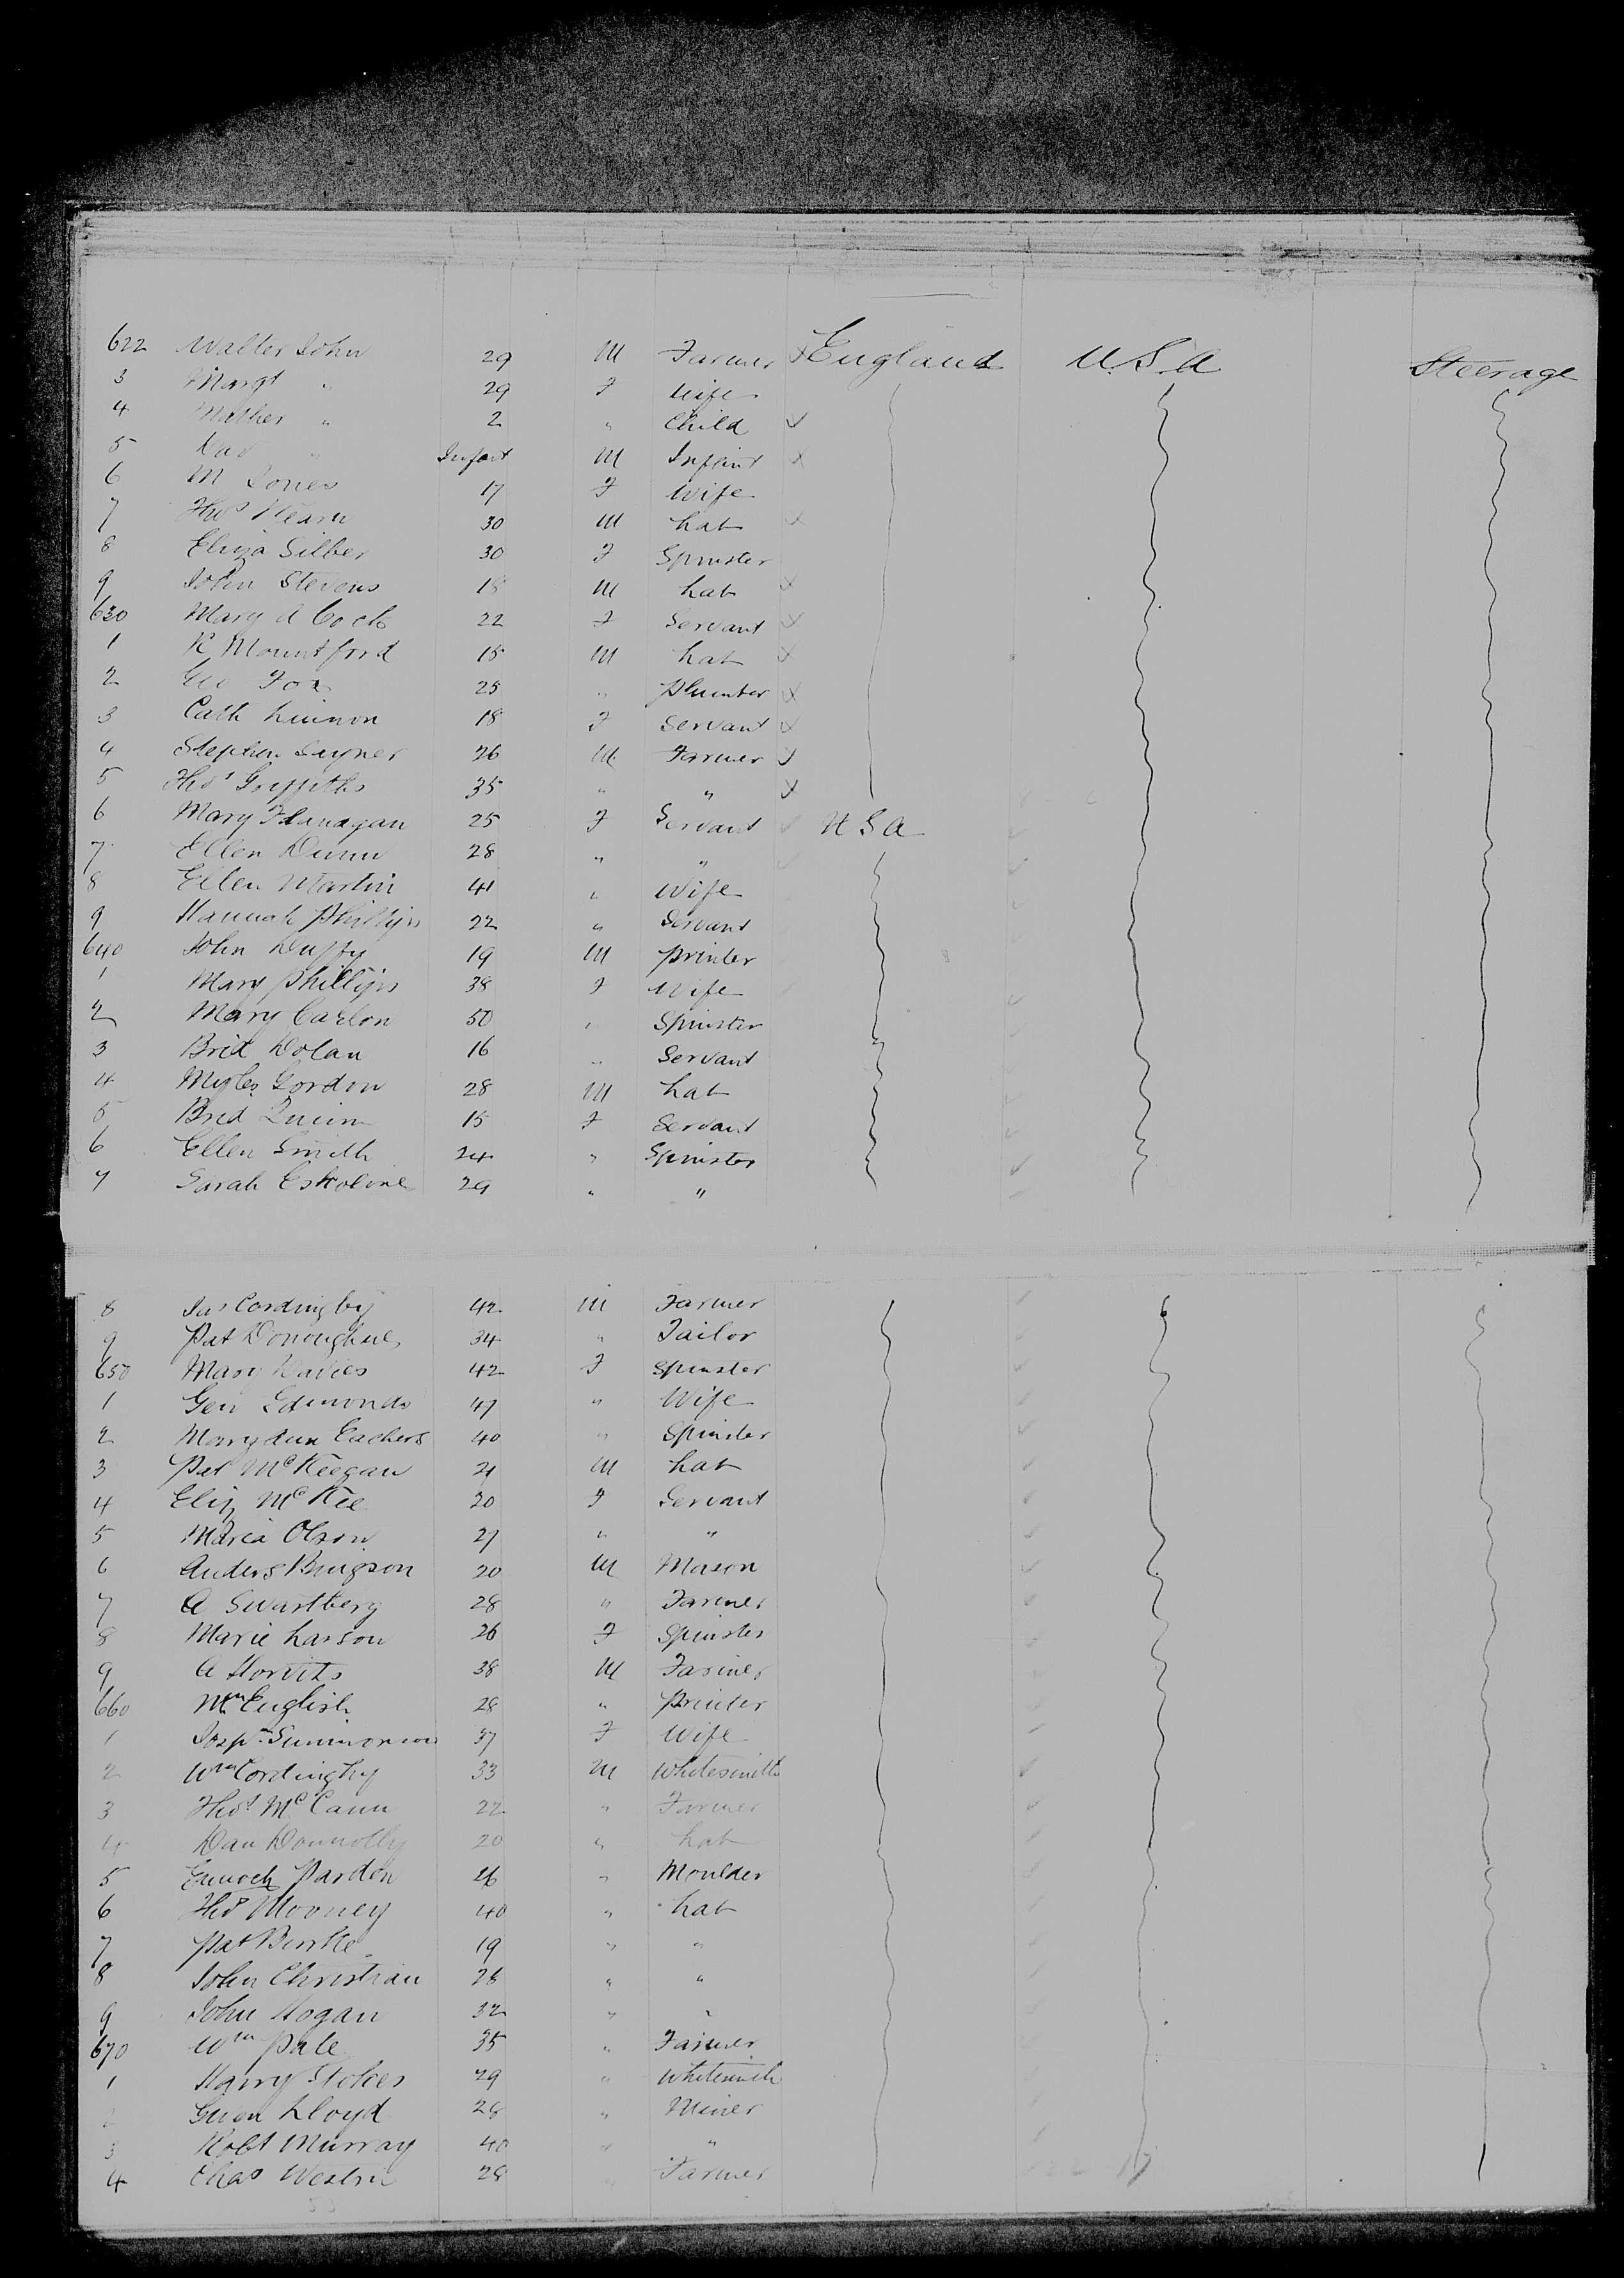 622 Walter John 29 M Farmer England U.S.A Steerage
3 Margt " 29 F Wife
4 Mather " 2 " Child
5 Dav " Infant M Infant
6 M Jones 17 F Wife
7 Thos Hearn 30 M Lab
8 Eliza Silber 30 F Spinster
9 John Stevens 18 M Lab
630 Mary A Cock 22 F Servant
1 R Mountford 15 M Lab
2 Geo Fox 25 " Plumber
3 Cath Linnon 18 F Servant
4 Stephen Sayner 26 M Farmer
5 Thos Griffiths 35 " "
6 Mary Flanagan 25 F Servant U S A
7 Ellen Dunn 28 " "
8 Ellen Martin 41 " Wife
9 Hannah Phillips 22 " Servant
640 John Duffy 19 M Printer
1 Mary Phillips 38 F Wife
2 Mary Carlon 50 " Spinster
3 Brid Dolan 16 " Servant
4 Myles Gordon 28 M Lab
5 Brid Quinn 15 F Servant
6 Ellen Smith 24 " Spinster
7 Sarah 29 " "
8 Jas Cordingby 42 M Farmer
9 Pat Donoughue 34 " Tailor
650 Mary Davies 42 F Spinster
1 Geo Edmonds 47 " Wife
2 Mary Ann Eachers 40 " Spinster
3 Pat McKeegan 21 M Lab
4 Eliz McKee 20 F Servant
5 Maria Olson 27 " "
6 Anders 20 M Mason
7 A Swartberg 28 " Farmer
8 Marie Larson 26 F Spinster
9 A Horvits 38 M Farmer
660 Wm English 28 " Printer
1 37 F Wife
2 Wm Cordingby 33 M Whitesmith
3 Thos McCann 22 " Farmer
4 Dan Donnolly 20 " Lab
5 Enuoch Parden 26 " Moulder
6 Thos Mooney 40 " Lab
7 Pat Burke 19 " "
8 John Christian 26 " "
9 John Hogan 32 " "
670 Wm Pale 35 " Farmer
1 Harry Stokes 29 " Whitesmith
2 Gwen Lloyd 28 " Miner
3 Robt Murray 40 " "
4 Chas 28 " Farmer